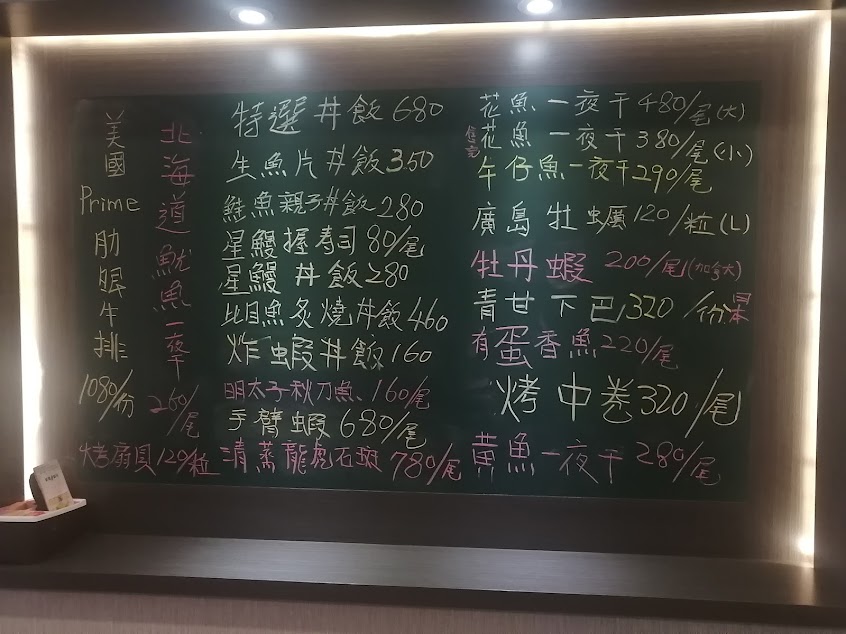 美國Prime肋眼牛排1080/份
北海道魷魚一夜干260/尾
烤扇貝120/粒
特選丼飯680
生魚片丼飯350
鮭魚親子丼飯280
星鰻握壽司80/尾
星鰻丼飯280
比目魚炙燒丼飯460
炸蝦丼飯160
明太子秋刀魚、160/尾
手臂蝦680/尾
清蒸龍虎石斑780/尾
花魚一夜干480/尾(大)
售完
花魚一夜干380/尾(小)
午仔魚一夜干290/尾
廣島牡蠣120/粒(L)
牡丹蝦200/尾(加拿大)
青甘下巴320/份日本
有蛋香魚220/尾
烤中卷320/尾
黃魚一夜干280/尾